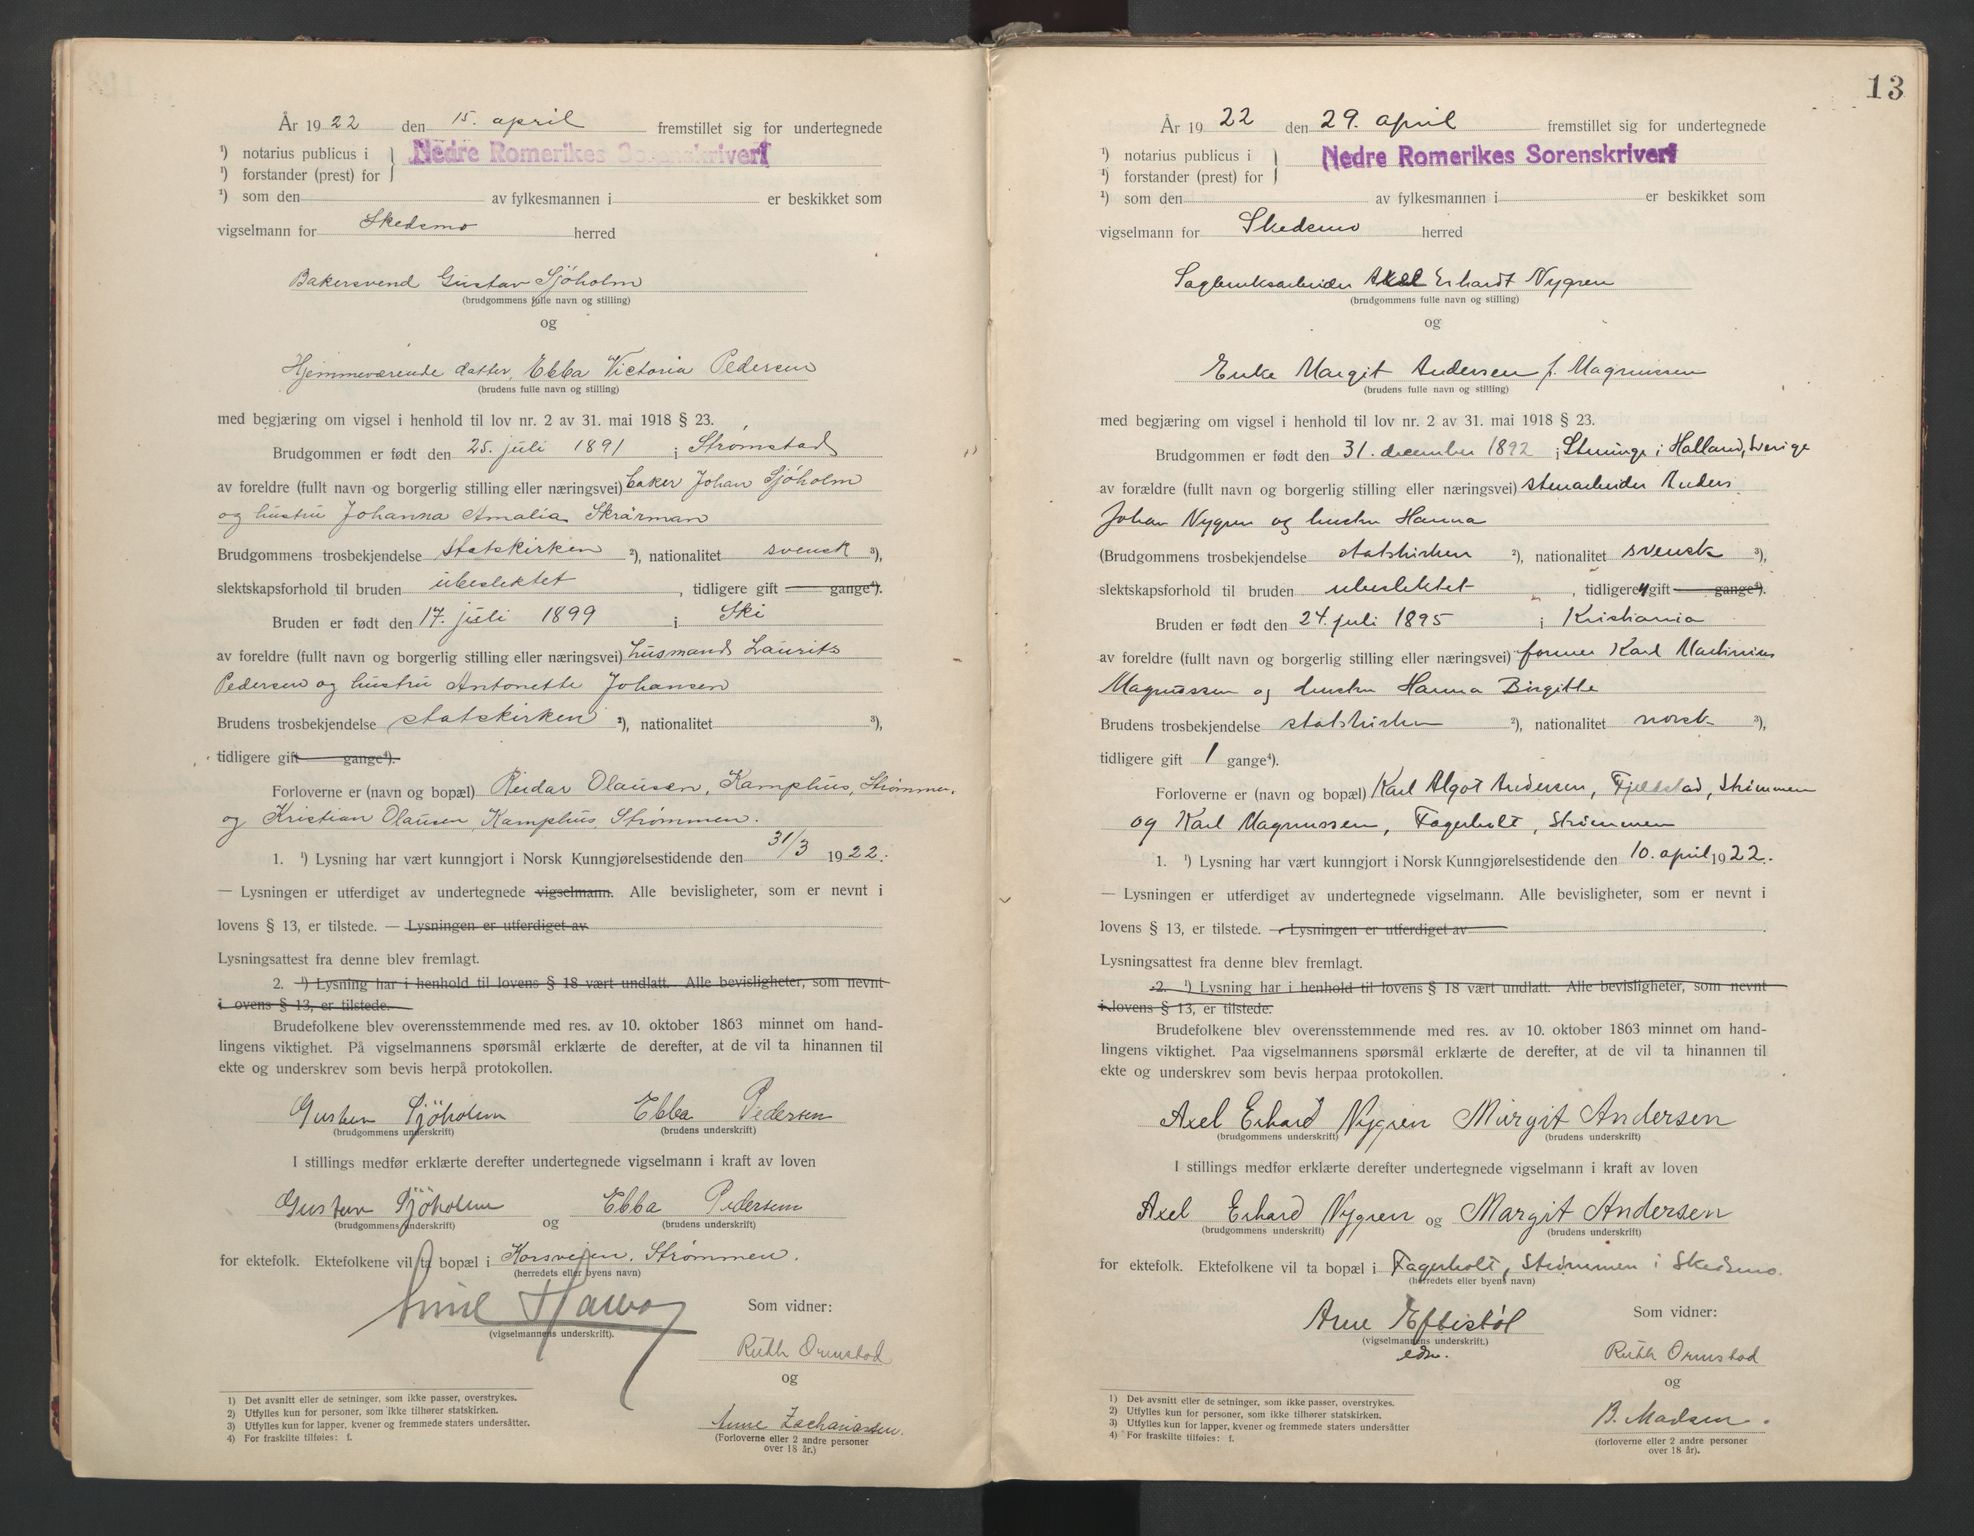 År 1922 den 15. april fremstillet sig for undertegnede
¹) notarius publicus i Nedre Romerikes Sorenskriveri
¹) forstander (prest) for
¹) som den av fylkesmannen i er beskikket som
vigselmann for Skedsmo herred
Bakersvend Gustav Sjöholm
(brudgommens fulle navn og stilling)
og
Hjemmeværende datter, Ebba Victoria Pedersen
(brudens fulle navn og stilling)
med begjæring om vigsel i henhold til lov nr. 2 av 31. mai 1918 § 23.
Brudgommen er født den 25. juli 1891 i Strømstad
av foreldre (fullt navn og borgerlig stilling eller næringsvei) baker Johan Sjöholm
og hustru Johanna Amalia Skrärman
Brudgommens trosbekjendelse statskirken ²), nationalitet svensk ³),
slektskapsforhold til bruden ubeslektet, tidligere gift gange⁴).
Bruden er født den 17. juli 1899 i Ski
av foreldre (fullt navn og borgerlig stilling eller næringsvei) husmand Laurits
Pedersen og hustru Antonette Johansen
Brudens trosbekjendelse statskirken ²), nationalitet ³),
tidligere gift gange⁴).
Forloverne er (navn og bopæl) Reidar Olausen, Kamphus, Strømmen,
og Kristian Olausen, Kamphus, Strømmen.
1. ¹) Lysning har vært kunngjort i Norsk Kunngjørelsestidende den 31/3 1922.
— Lysningen er utferdiget av undertegnede vigselmann. Alle bevisligheter, som er nevnt i
lovens § 13, er tilstede. — Lysningen er utferdiget av
Lysningsattest fra denne blev fremlagt.
2. ¹) Lysning har i henhold til lovens § 18 vært undlatt. Alle bevisligheter, som nevnt
i ovens § 13, er tilstede.
Brudefolkene blev overensstemmende med res. av 10. oktober 1863 minnet om hand-
lingens viktighet. På vigselmannens spørsmål erklærte de derefter, at de vil ta hinannen til
ekte og underskrev som bevis herpå protokollen.
Gustav Sjöholm Ebba Pedersen
(brudgommens underskrift) (brudens underskrift)
I stillings medfør erklærte derefter undertegnede vigselmann i kraft av loven
Gustav Sjöholm og Ebba Pedersen
(brudgommens underskrift) (brudens underskrift)
for ektefolk. Ektefolkene vil ta bopæl i Korsveien, Strømmen.
(herredets eller byens navn)
Som vidner:
(vigselmannens underskrift).
Ruth Ormstad
og
Anne Zachariassen.
(Forloverne eller 2 andre personer
over 18 år.)
1) Det avsnitt eller de setninger, som ikke passer, overstrykes.
2) Utfylles kun for personer, som ikke tilhører statskirken.
3) Utfylles kun for lapper, kvener og fremmede staters undersåtter.
4) For fraskilte tilføies: f.
13
År 1922 den 29. april fremstillet sig for undertegnede
¹) notarius publicus i Nedre Romerikes Sorenskriveri
¹) forstander (prest) for
¹) som den av fylkesmannen i er beskikket som
vigselmann for Skedsmo herred
Sagbruksarbeider Axel Erhardt Nygren
(brudgommens fulle navn og stilling)
og
Enke Margit Andersen f. Magnussen
(brudens fulle navn og stilling)
med begjæring om vigsel i henhold til lov nr. 2 av 31. mai 1918 § 23.
Brudgommen er født den 31. december 1892 i Steninge i Halland, Sverige
av forældre (fullt navn og borgerlig stilling eller næringsvei) stenarbeider Anders
Johan Nygren og hustru Hanna
(Brudgommens trosbekjendelse statskirken ²), nationalitet svensk ³),
slektskapsforhold til bruden ubeslektet, tidligere gift gange⁴).
Bruden er født den 24. juli 1895 i Kristiania
av foreldre (fullt navn og borgerlig stilling eller næringsvei) former Karl Mathinius
Magnussen og hustru Hanna Birgitte
Brudens trosbekjendelse statskirken ²), nationalitet norsk ³),
tidligere gift 1 gange⁴).
Forloverne er (navn og bopæl) Karl Algot Andersen, Fjeldstad, Strømmen
og Karl Magnussen, Fagerholt, Strømmen
1. ¹) Lysning har vært kunngjort i Norsk Kunngjørelsestidende den 10. april 1922.
— Lysningen er utferdiget av undertegnede vigselmann. Alle bevisligheter, som er nevnt i
lovens § 13, er tilstede. — Lysningen er utferdiget av
Lysningsattest fra denne blev fremlagt.
2. ¹) Lysning har i henhold til lovens § 18 vært undlatt. Alle bevisligheter, som nevnt
i lovens § 13, er tilstede.
Brudefolkene blev overensstemmende med res. av 10. oktober 1863 minnet om hand-
lingens viktighet. Paa vigselmannens spørsmål erklærte de derefter, at de vil ta hinannen til
ekte og underskrev som bevis herpaa protokollen.
Axel Erhard Nygren Margit Andersen
(brudgommens underskrift) (brudens underskrift)
I stillings medfør erklærte derefter undertegnede vigselmann i kraft av loven
Axel Erhard Nygren og Margit Andersen
(brudgommens underskrift) (brudens underskrift)
for ektefolk. Ektefolkene vil ta bopæl i Fagerholt, Strømmen i Skedsmo.
(herredets eller byens navn)
Arne Eftestøl Som vidner:
(vigselmannens underskrift.)
edsv.
Ruth Ormstad
og
B. Madsen.
(forloverne eller 2 andre personer
over 18 år).
1) Det avsnitt eller de setninger, som ikke passer, overstrykes.
2) Utfylles kun for personer, som ikke tilhører statskirken.
3) Utfylles kun for lapper, kvener og fremmede staters undersåtter
4) For fraskilte tilføies: f.